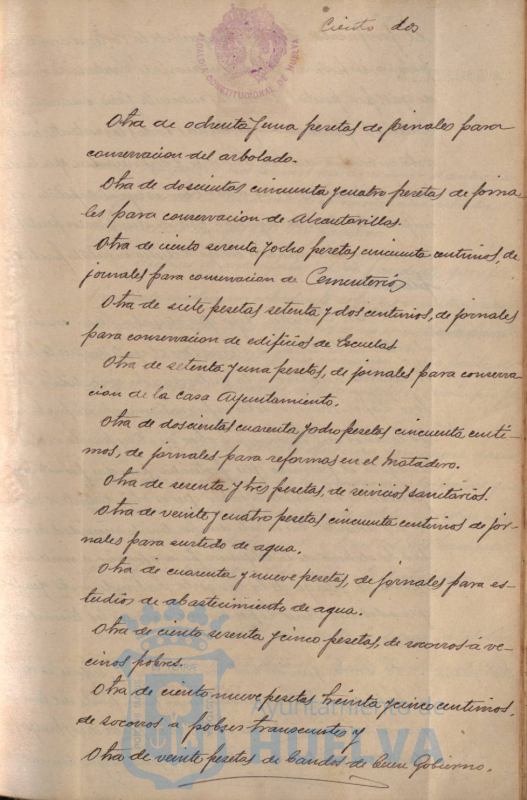 Ciento dos
ALCALDIA CONSTITUCIONAL DE HUELVA
Otra de ochenta y una pesetas de jornales para
conservacion del arbolado.
Otra de doscientas cincuenta y cuatro pesetas de jorna-
les para conservacion de Alcantarillas.
Otra de ciento sesenta y ocho pesetas cincuenta centimos, de
jornales para conservacion de Cementerios
Otra de siete pesetas setenta y dos centimos, de jornales
para conservacion de edificios de Escuelas
Otra de setenta y una pesetas, de jornales para conserva-
cion de la Casa Ayuntamiento.
Otra de doscientas cuarenta y ocho pesetas cincuenta centi-
mos, de jornales para reformas en el Matadero.
Otra de sesenta y tres pesetas, de servicios sanitarios.
Otra de veinte y cuatro pesetas cincuenta centimos de jor-
nales para surtido de agua.
Otra de cuarenta y nueve pesetas, de jornales para es-
tudios de abastecimiento de agua.
Otra de ciento sesenta y cinco pesetas, de socorros á ve-
cinos pobres.
Otra de ciento nueve pesetas treinta y cinco centimos,
de socorros a pobres transeuntes y
Otra de veinte pesetas de bandos de buen Gobierno.
Ayuntamiento de
HUELVA